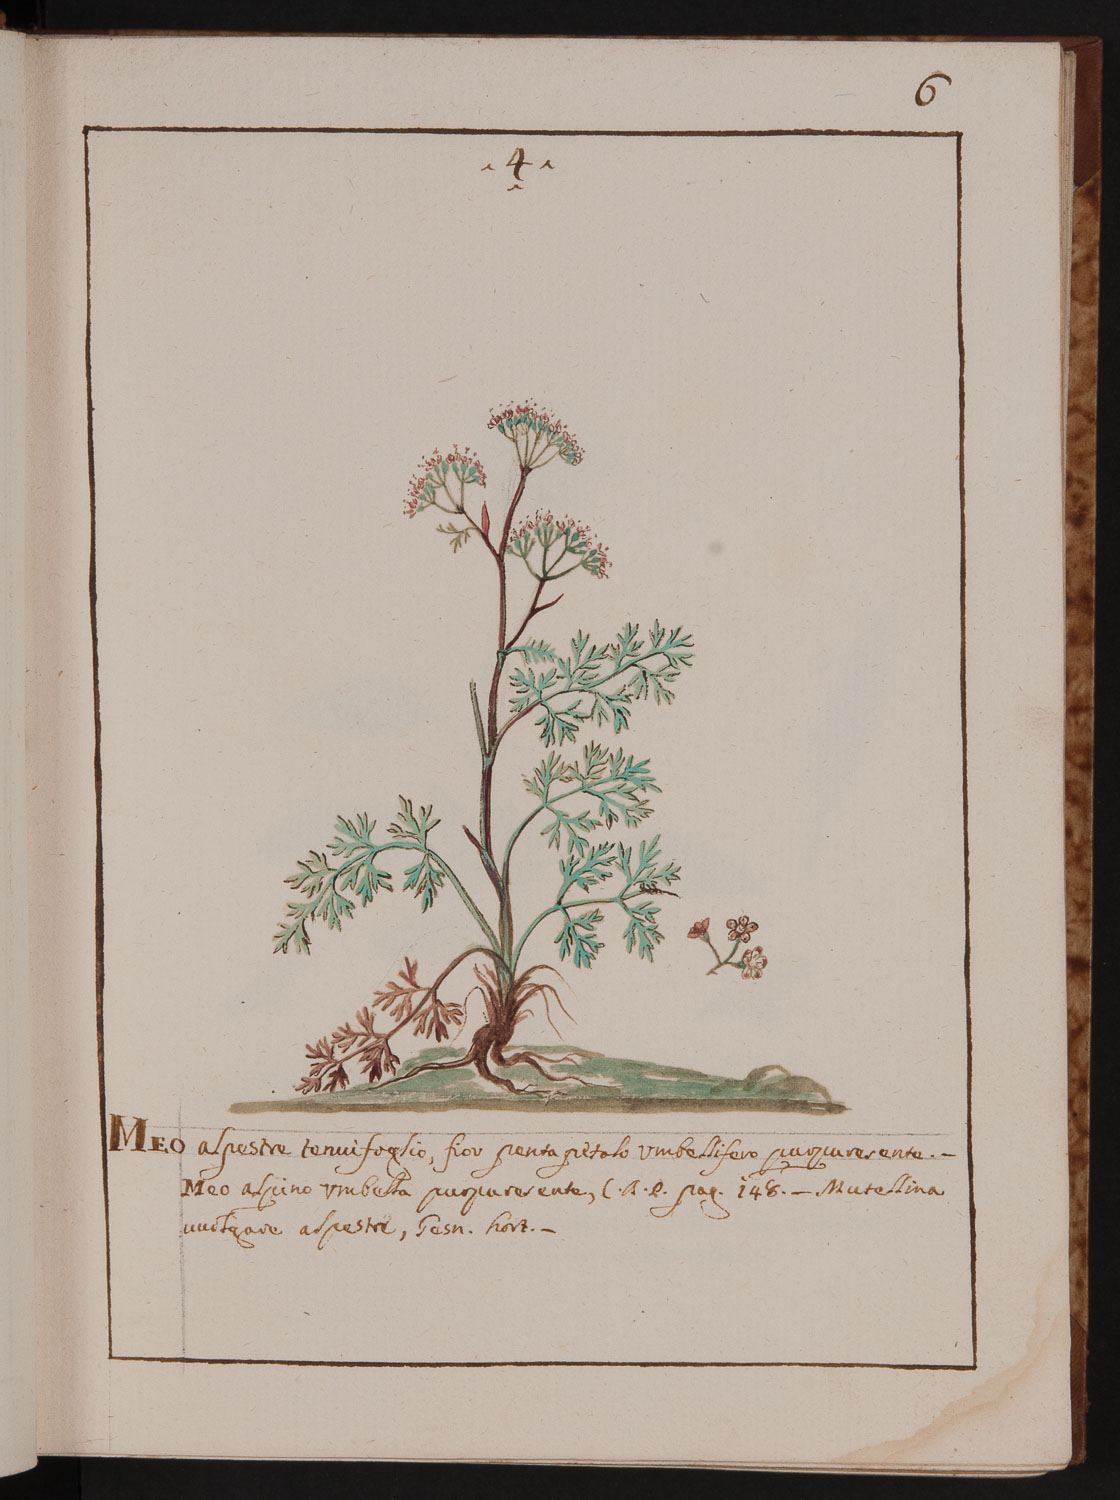 6
4
Meo alpestre tenuifoglio, fior penta pètalo vmbellifero purpuresente. –
Meo alpino vmbella purpuresente, C. B. P. pag. 148. – Mutellina
uulgare alpestre, Gesn. hort. –